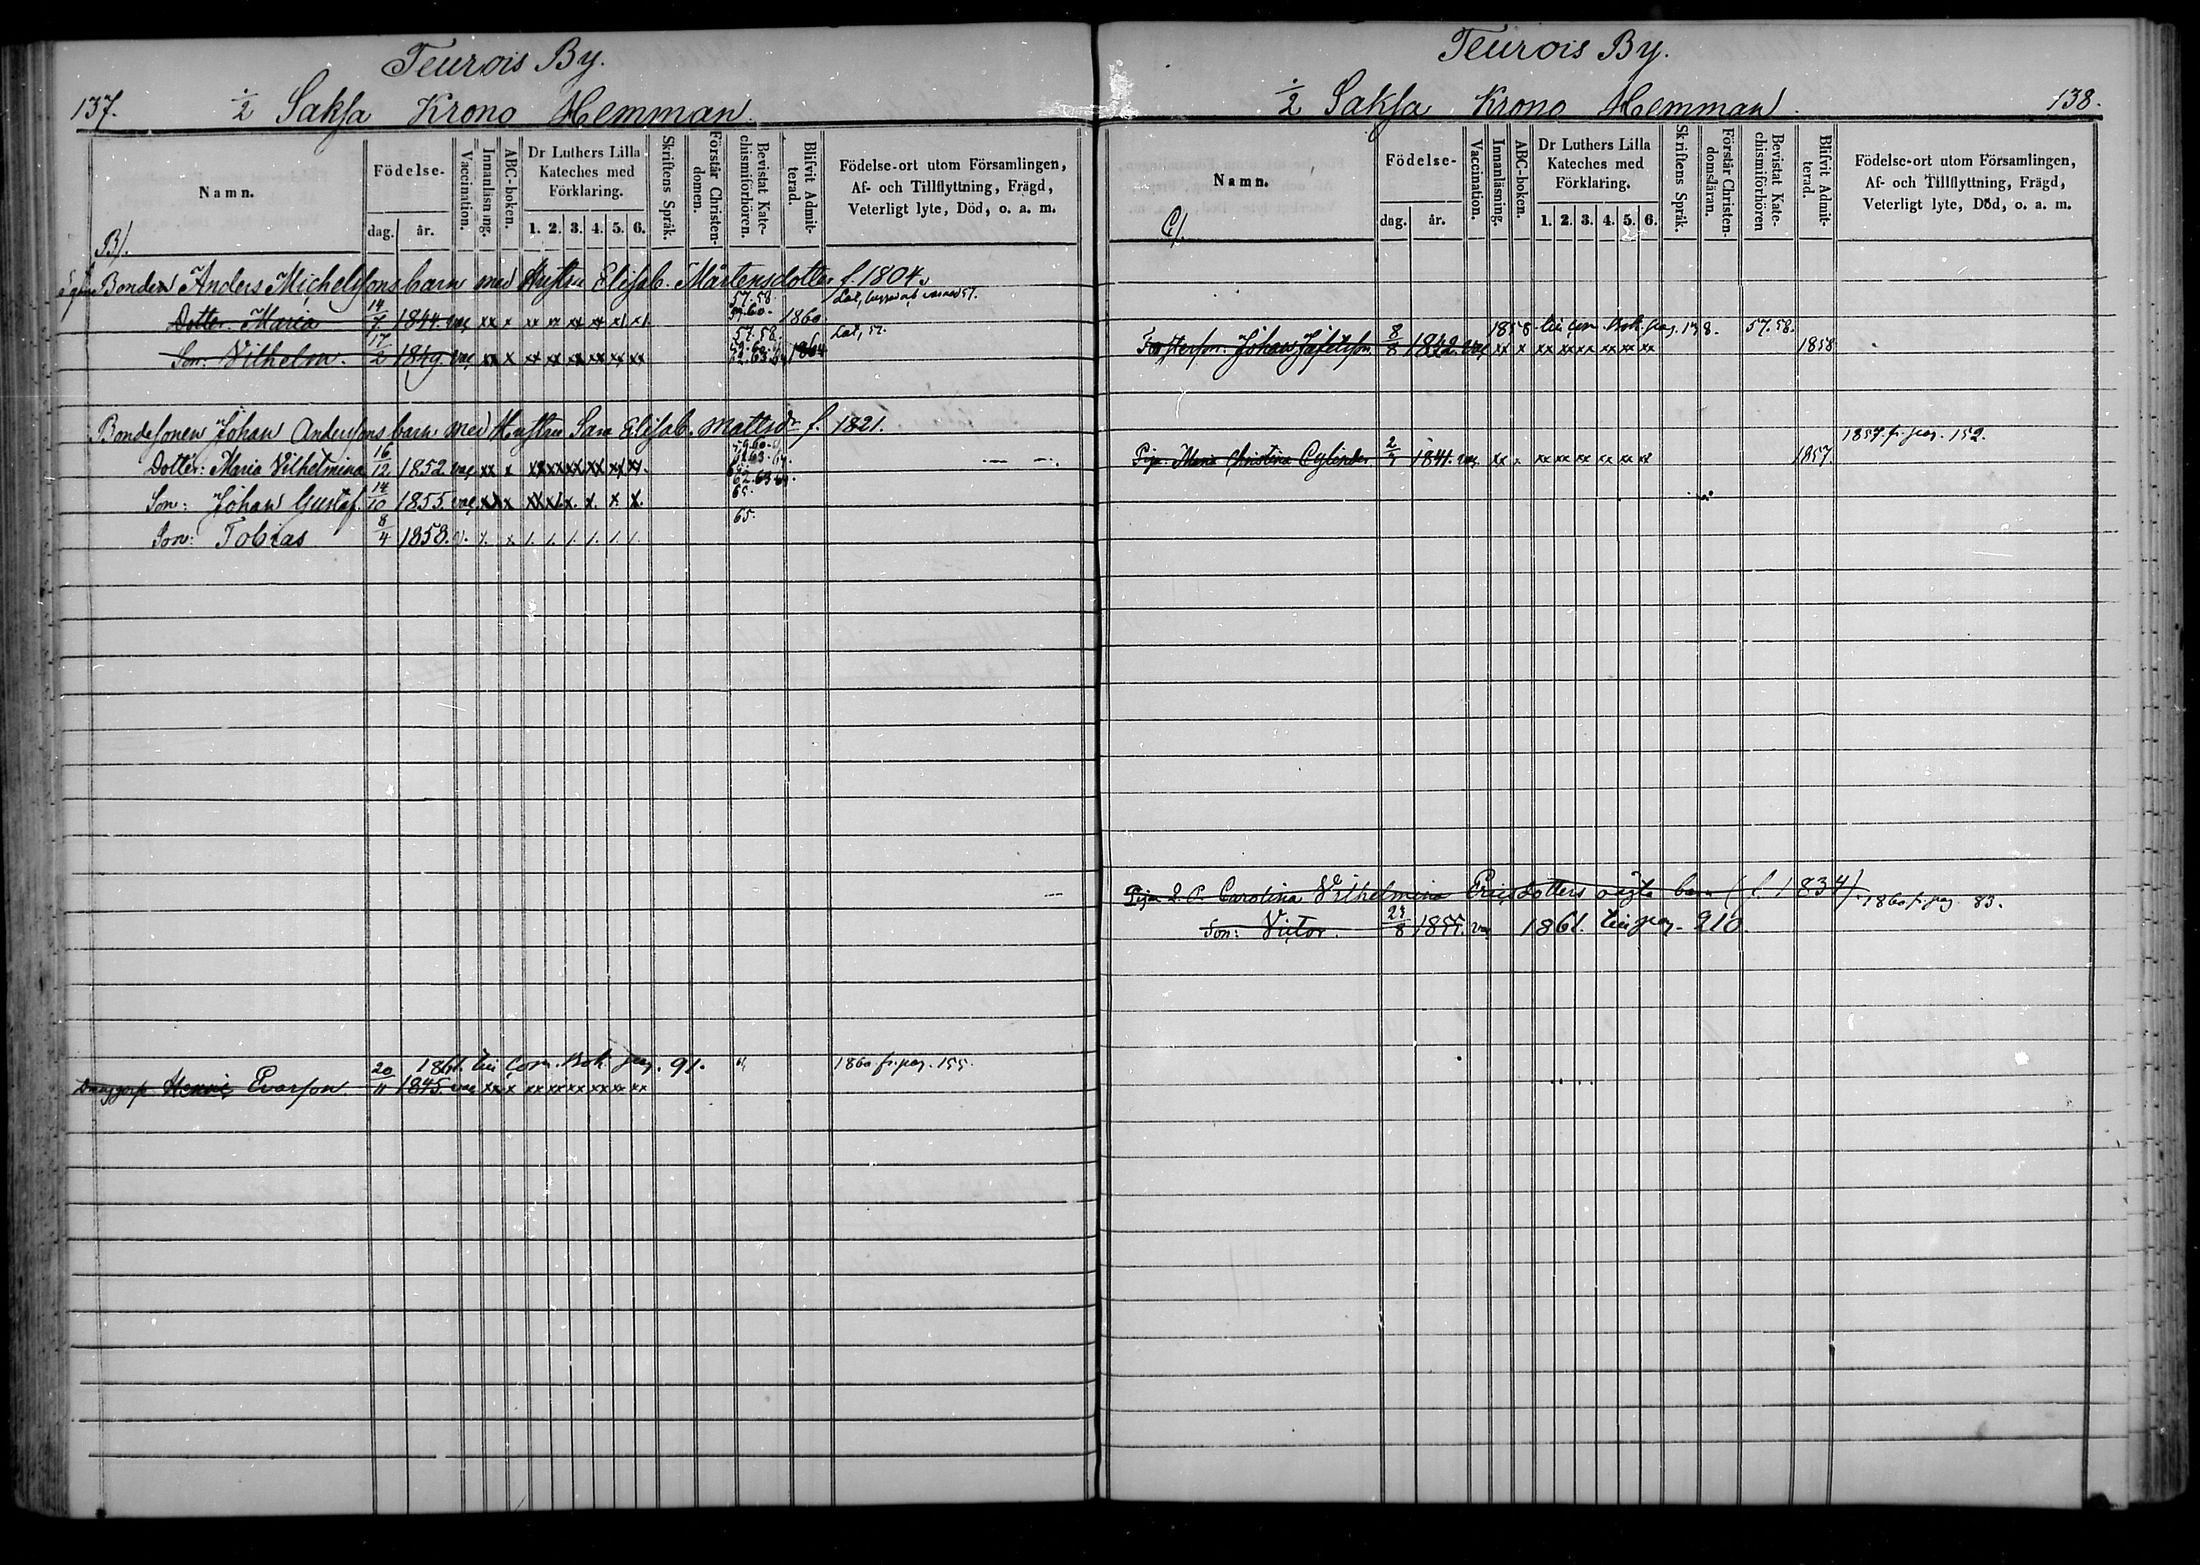 Teurois By.
137. 1/2 Saksa Krono Hemman.
Namn.
Födelse-
dag. år.
Vaccination.
Innanläsning.
ABC-boken.
Dr Luthers Lilla Kateches med Förklaring.
1. 2. 3. 4. 5. 6.
Skriftens Språk.
Förstår Christendomen.
Bevistat Katechismiförhören.
Blifvit Admitterad.
Födelse-ort utom Församlingen, Af- och Tillflyttning, Frägd, Veterligt lyte, Död, o. a. m.
B/.
Bonden Anders Michelssons barn med Hustru Elisab. Mårtensdotter f. 1804.
Dotter: Maria 14/7 1844. vac xx x xx xx xx xx x/ x/ 57.58. 59.60. 1860.
Son: Vilhelm. 17/2 1849. vac xx x xx xx xx xx xx xx 57.58. 59.60. 62.63.64 1864 Lat, 57.
Bondesonen Johan Anderssons barn med Hustru Sara Elisab. Mattsdr f. 1821.
Dotter: Maria Vilhelmina 16/12 1852. vac xx x xx xx xx xx xx xx. 59.60. 62.63.64.
Son: Johan Gustaf. 14/10 1855. vac. xx x xx x/. x. x. x. x. 62.63.64. 65.
Son: Tobias 8/4 1858. v. /. x /. /. /. /. /. /. 65.
1861. till Com. Bok. pag. 91. 1860 fr. pag. 155.
Henric Evarsson. 20/11 1845. vac xx x xx xx xx xx xx xx
Teurois By.
1/2 Saksa Krono Hemman. 138.
Namn.
Födelse-
dag. år.
Vaccination.
Innanläsning.
ABC-boken.
Dr Luthers Lilla Kateches med Förklaring.
1. 2. 3. 4. 5. 6.
Skriftens Språk.
Förstår Christendomsläran.
Bevistat Katechismiförhören
Blifvit Admitterad.
Födelse-ort utom Församlingen, Af- och Tillflyttning, Frägd, Veterligt lyte, Död, o. a. m.
C/.
1858 till Com. Bok. pag. 138. 57.58.
Fosterson: Johan Jafetsson 8/8 1842. vac xx x xx xx xx xx xx xx 1858
1857 fr. pag. 152.
Piga Maria Christina Cylinder 1841. vac xx x xx xx xx xx xx xx 1857
Piga Carolina Vilhelmina Ericsdotters oägta barn (f. 1834) 1860 fr. pag. 83.
Son: Victor. 1855. vac 1861. till pag. 210.